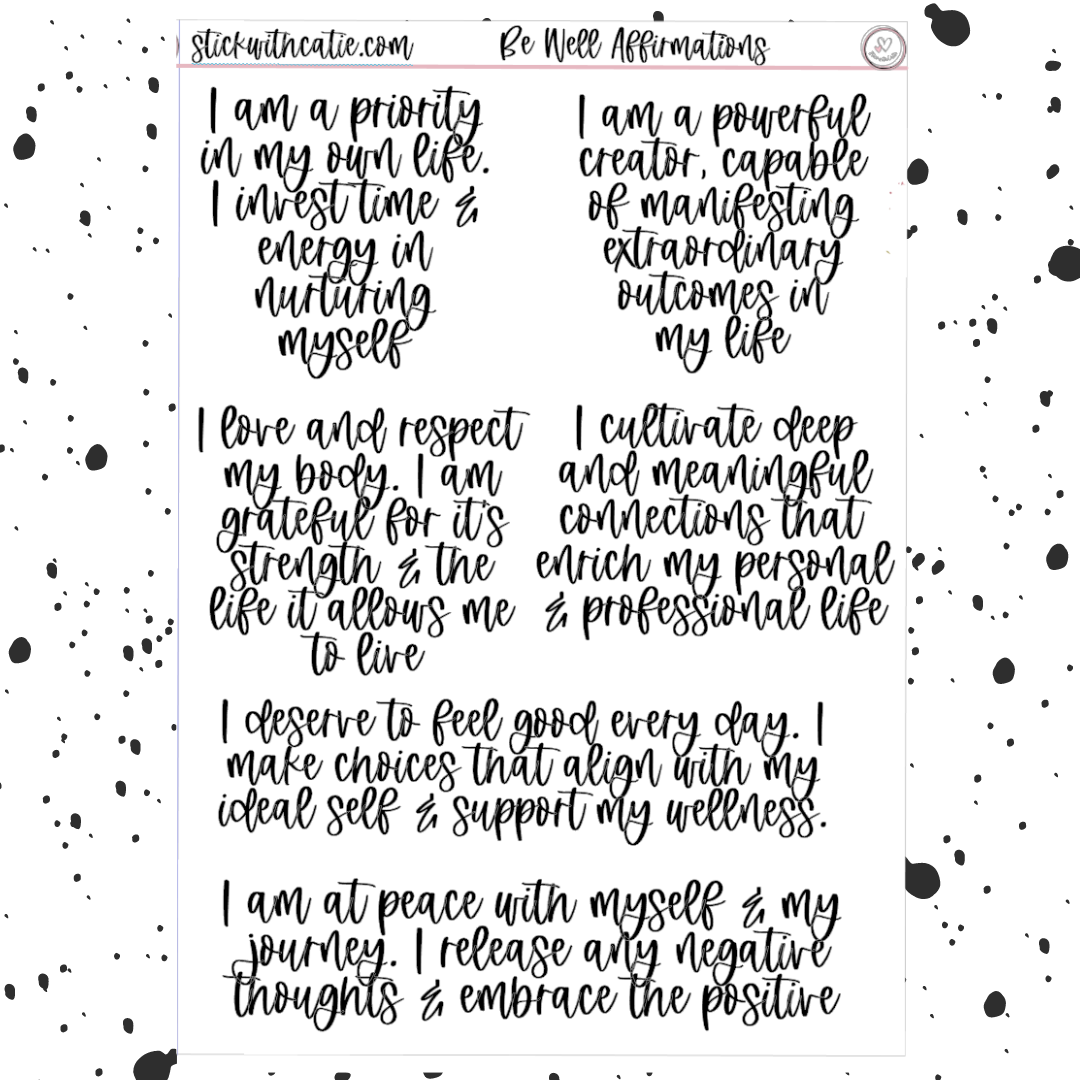 stickwithcatie.com
Be Well Affirmations
I am a priority
in my own life.
I invest time &
energy in
nurturing
myself
I am a powerful
creator, capable
of manifesting
extraordinary
outcomes in
my life
I love and respect
my body. I am
grateful for it's
strength & the
life it allows me
to live
I cultivate deep
and meaningful
connections that
enrich my personal
& professional life
I deserve to feel good every day. I
make choices that align with my
ideal self & support my wellness.
I am at peace with myself & my
journey. I release any negative
thoughts & embrace the positive